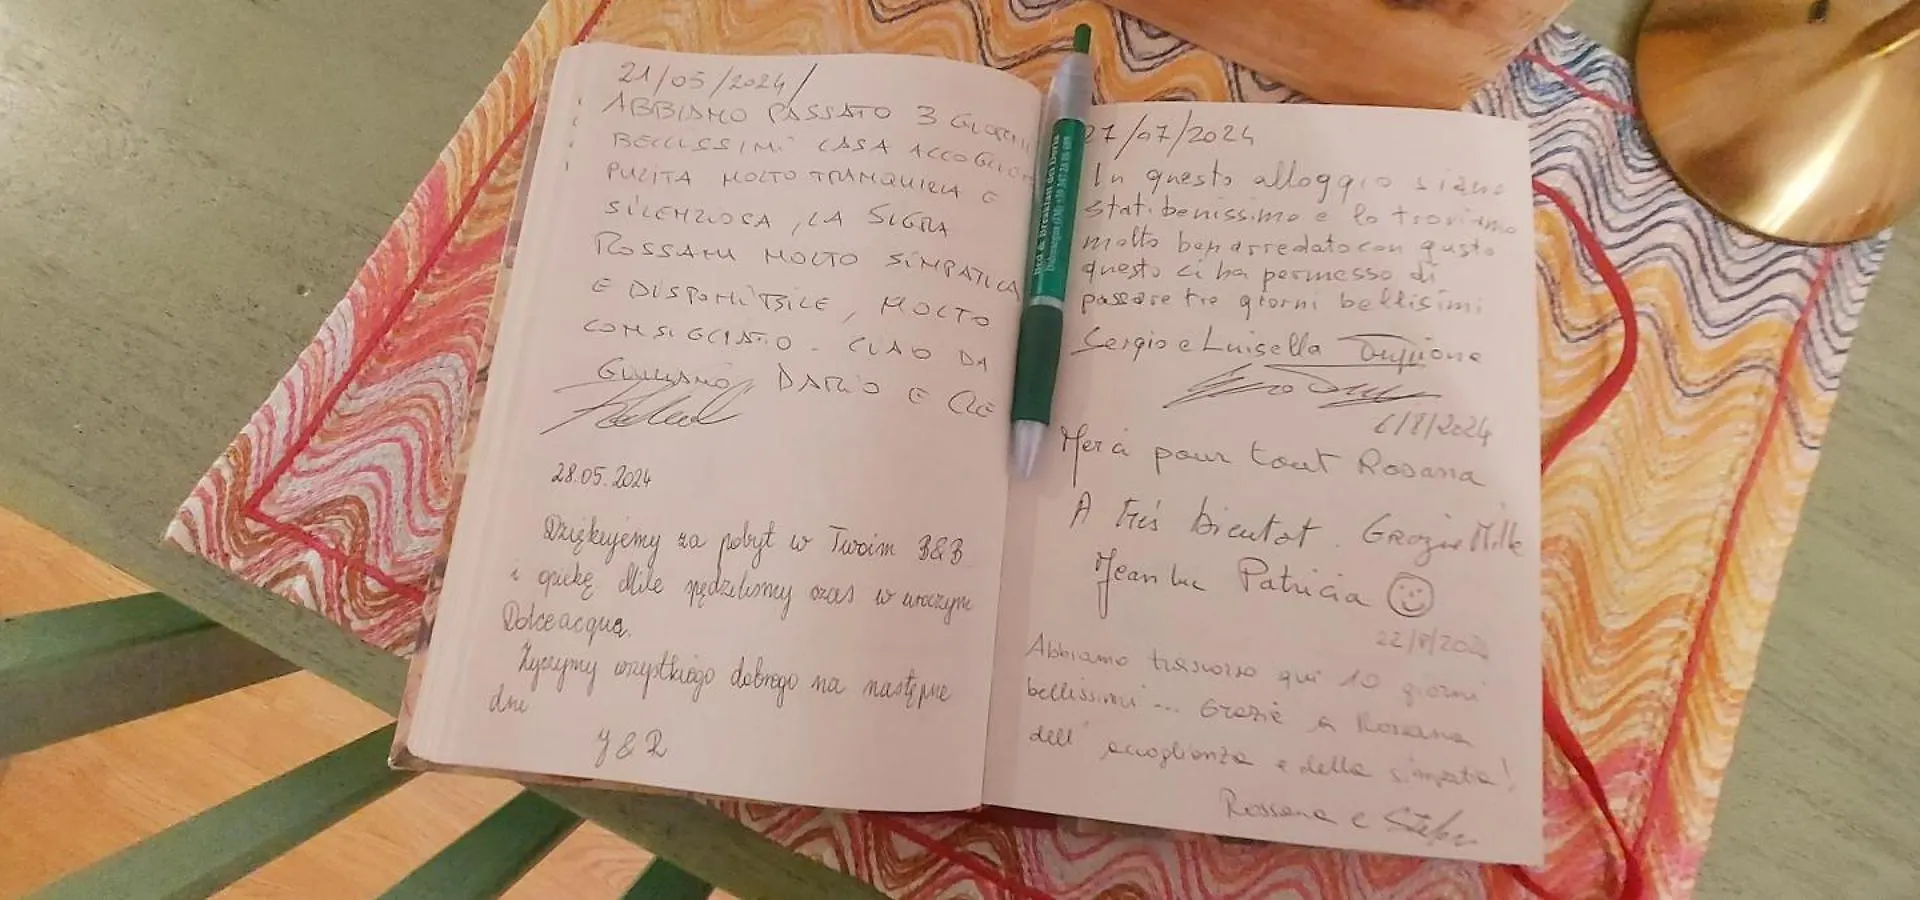 21/05/2024/
ABBIAMO PASSATO 3 GIORNI
BELLISSIMI CASA ACCOGLIEN
PULITA MOLTO TRANQUILLA E
SILENZIOSA, LA SIGRA
ROSSANA MOLTO SIMPATICA
E DISPONIBILE, MOLTO
CONSIGLIATO - CIAO DA
GIULIANO, DARIO E CLE
28.05.2024
Dziękujemy za pobyt w Twoim B&B
i opiekę. Mile spędziliśmy czas w uroczym
Dolceacqua.
Życzymy wszystkiego dobrego na następne
dni
J & R
Bed & Breakfast dei Doria
27/07/2024
In questo alloggio siamo
stati benissimo e lo troviamo
molto ben arredato con gusto
questo ci ha permesso di
passare tre giorni bellisimi
Sergio e Luisella
6/8/2024
Merci pour tout Rosana
A très bientot. Grazie Mille
Jean Luc Patricia
22/8/2024
Abbiamo trascorso qui 10 giorni
bellissimi... Grazie a Rossana
dell'accoglienza e della simpatia!
Rossana e Stefan